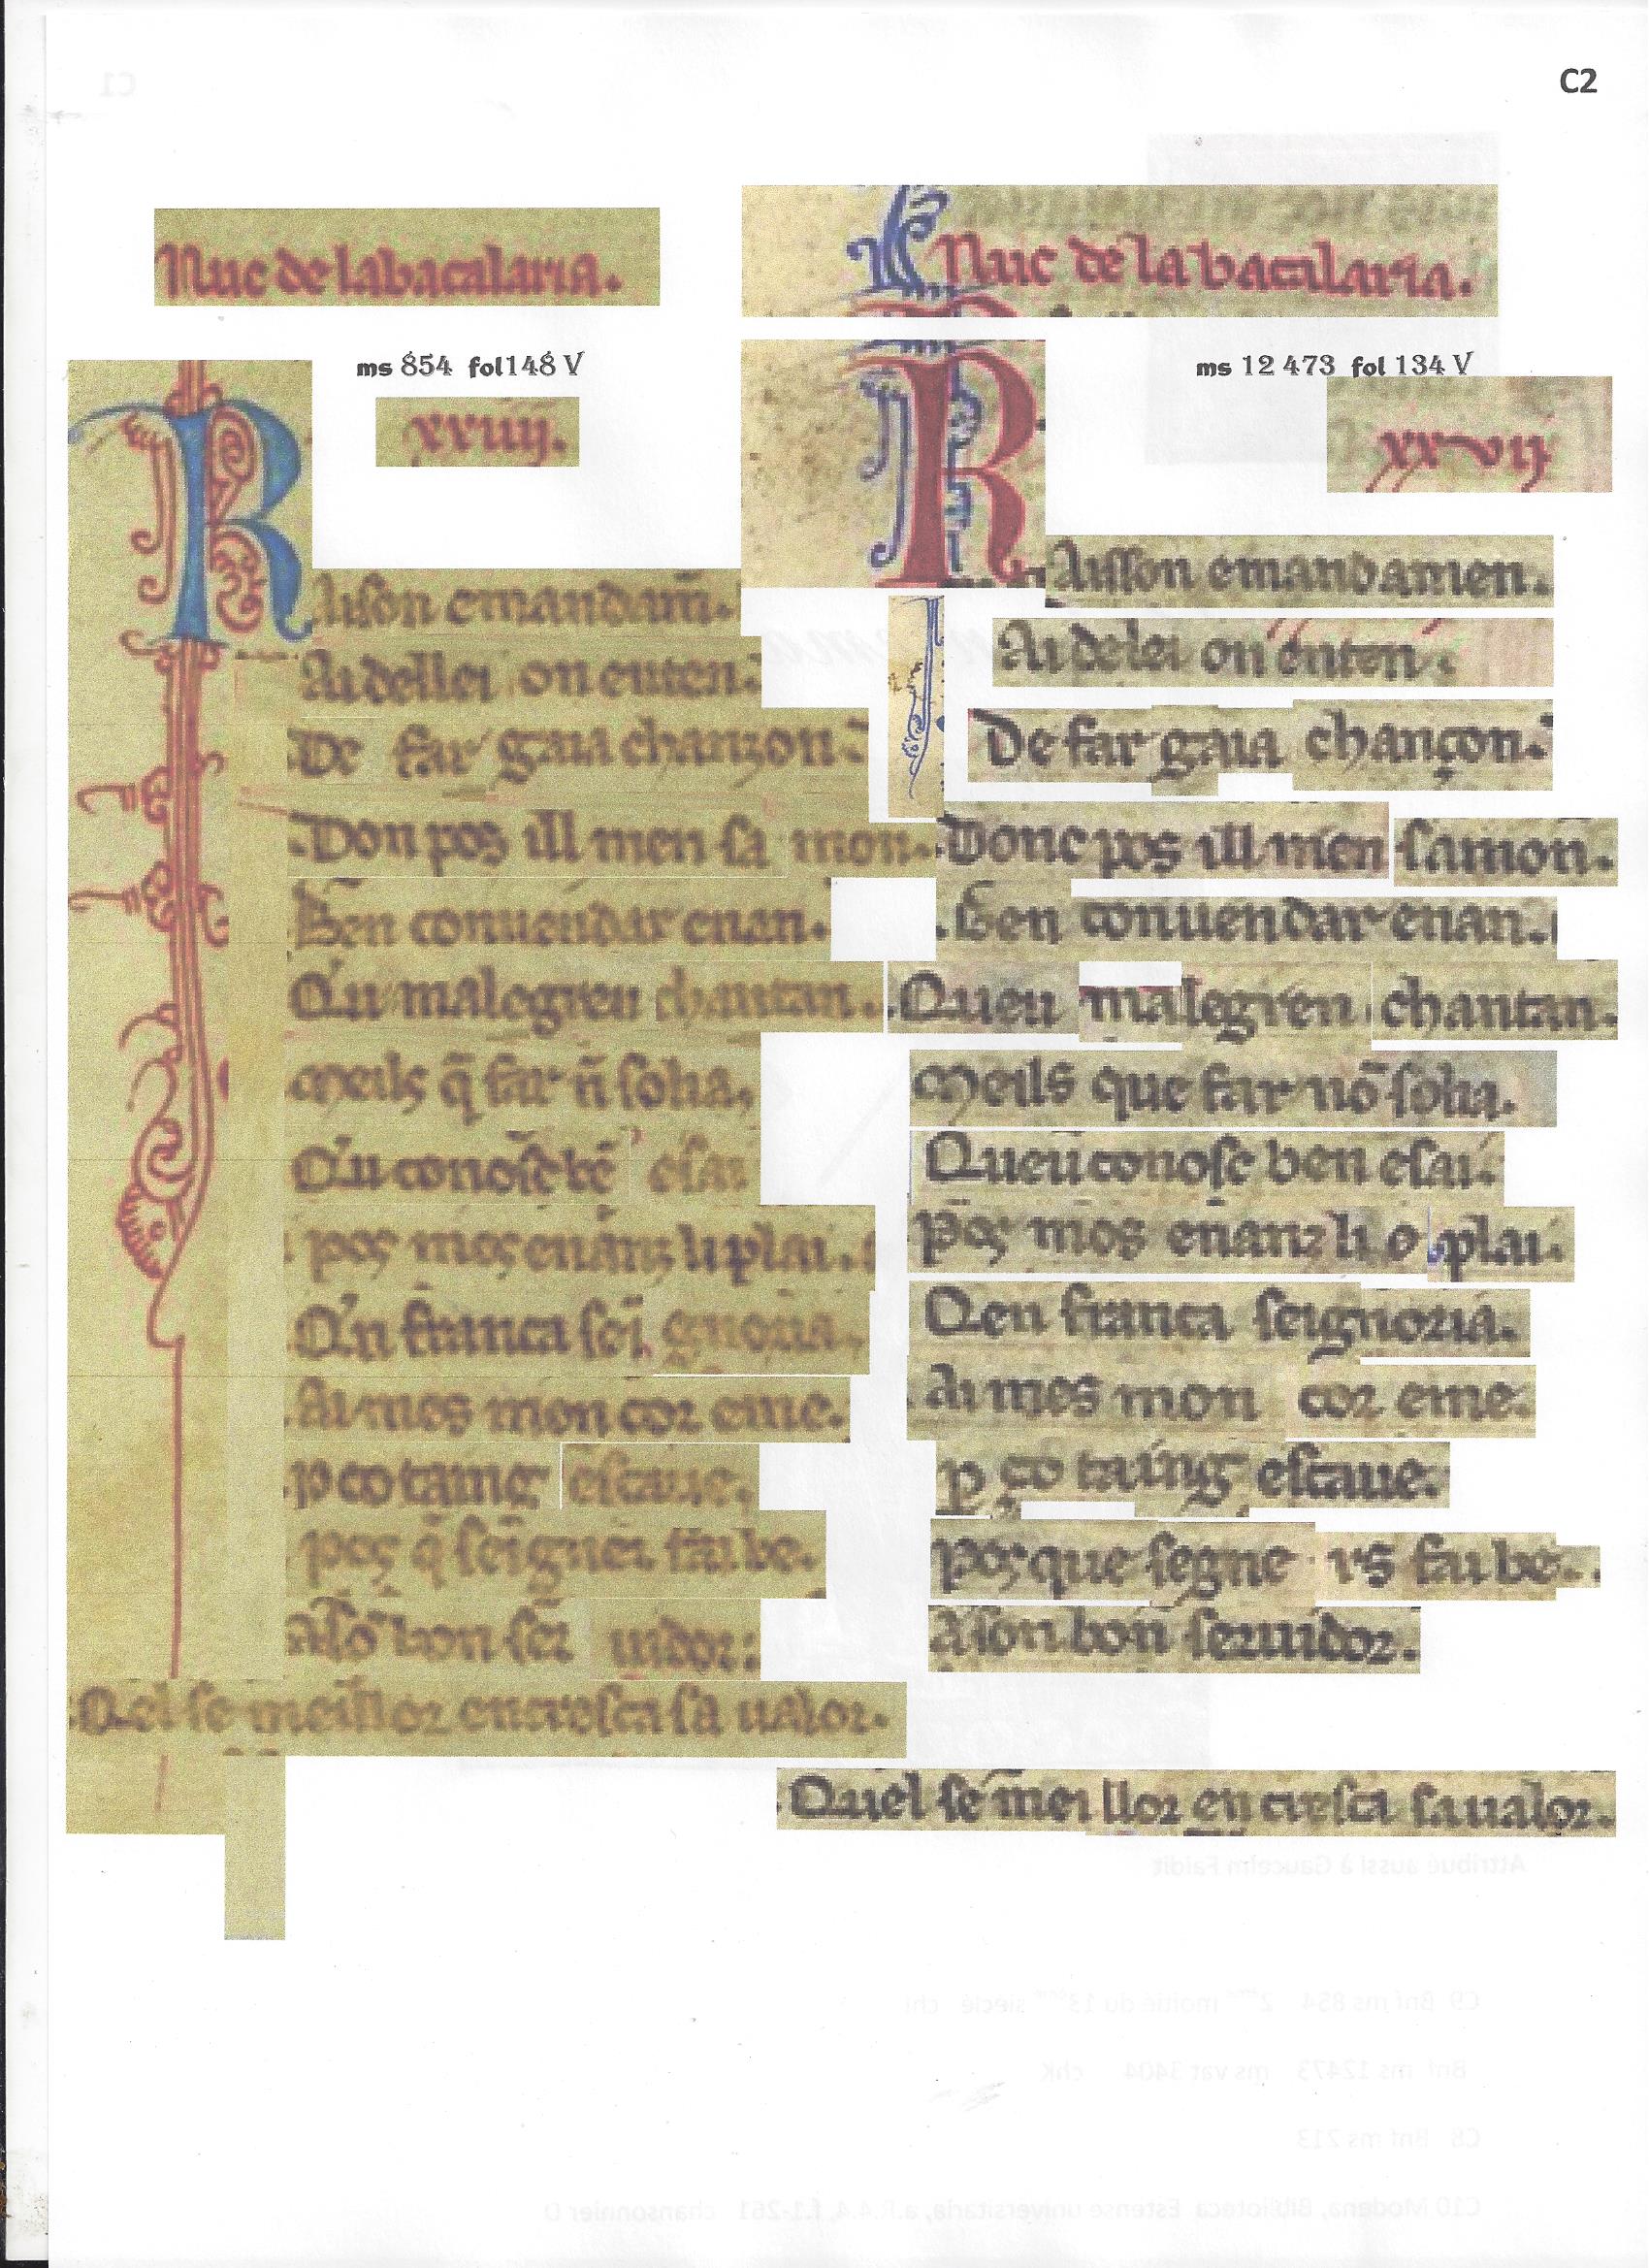 C2
Nuc de labacalaria.
ms 854 fol148 V
xxuiij.
RAison emandam̃.
Ai dellei on enten.
De far gaia chanzon.
Don pos ill men sa mon.
Ben conuendar enan.
Qu malegren chantan.
Meils q̃ far ñ solia,
Qu conosc bẽ esai
pos mos enanz li plai.
Qn franca sei gnoria,
Ai mes mon cor eme.
p co taing estaue.
pos q̃ seigner fai be.
A sõ bon ser uidor:
Qel se meillor encresca sa ualor.
Nuc de la bacalaria.
ms 12 473 fol 134 V
xxvij
RAisson emandamen.
Ai delei on enten.
De far gaia chançon.
Donc pos ill men samon.
Ben conuendar enan.
Queu malegren chantan.
Meils que far nõ solia.
Queu conosc ben esai.
pos mos enanz li o plai.
Qen franca seignoria.
Ai mes mon cor eme.
p ço taing estaue.
pos que segne rs fai be.
A son bon seruidor.
Quel se mei llor en cresca saualor.